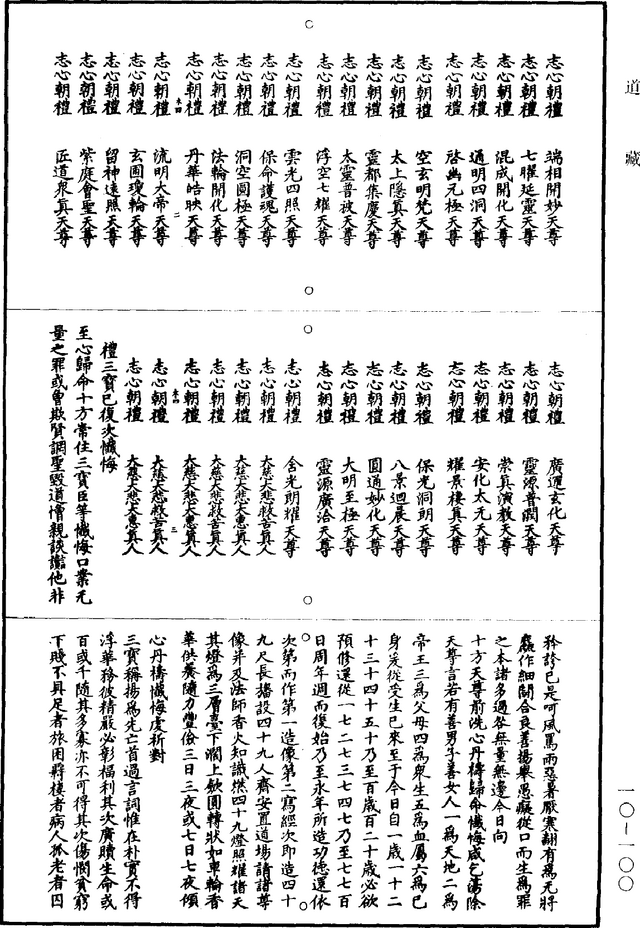 道藏
志心朝禮 端相開妙天尊
志心朝禮 七曜延靈天尊
志心朝禮 混成開化天尊
志心朝禮 通明四洞天尊
志心朝禮 啓幽元極天尊
志心朝禮 空玄明梵天尊
志心朝禮 太上隱真天尊
志心朝禮 靈都集慶天尊
志心朝禮 太靈普被天尊
志心朝禮 浮空七耀天尊
志心朝禮 雲光四照天尊
志心朝禮 保命護魂天尊
志心朝禮 洞空圓極天尊
志心朝禮 法輪開化天尊
志心朝禮 丹華皓映天尊
志心朝禮 流明大帝天尊
志心朝禮 玄圃瓊輪天尊
志心朝禮 留神遠照天尊
志心朝禮 紫庭會聖天尊
志心朝禮 匠道衆真天尊
志心朝禮 廣運玄化天尊
志心朝禮 靈源普潤天尊
志心朝禮 崇真演教天尊
志心朝禮 安化太元天尊
志心朝禮 耀景棲真天尊
志心朝禮 保光洞朗天尊
志心朝禮 八景迴晨天尊
志心朝禮 圓通妙化天尊
志心朝禮 大明至極天尊
志心朝禮 靈源廣洽天尊
志心朝禮 含光朗耀天尊
志心朝禮 大慈大悲救苦真人
志心朝禮 大慈大悲大惠真人
志心朝禮 大慈大悲救苦真人
志心朝禮 大慈大悲大惠真人
志心朝禮 大慈大悲救苦真人
志心朝禮 大慈大悲大惠真人
禮三寶已復次懺悔
至心歸命十方常住三寶臣等懺悔口業无
量之罪或曾欺賢調聖毀道憎親談讟他非
矜誇已是呵風罵雨惡暑厭寒翻有爲无將
麤作細關合良善揚舉愚癡從口而生爲罪
之本諸多過咎無量無邊今日向
十方天尊前洗心丹禱歸命懺悔咸乞蕩除
天尊言若有善男子善女人一爲天地二爲
帝王三爲父母四爲衆生五爲血屬六爲已
身爰從受生已來至于今日自一歲一十二
十三十四十五十乃至百歲百二十歲必欲
預修還從一七二七三七四七乃至七七百
日周年週而復始乃至永年所造功德還依
次第而作第一造像第二寫經次即造四十
九尺長旛設四十九人齋安置道場請諸尊
像并及法師香火知識㸐四十九燈照耀諸天
其燈爲三層臺下濶上歛圓轉狀如車輪香
華供養隨力豐儉三日三夜或七日七夜傾
心丹禱懺悔虔祈對
三寶稱揚爲先亡首過言詞惟在朴實不得
浮華務彼精嚴必彰福利其次廣贖生命或
百或千隨其多寡亦不可得其次傷憫貧窮
下賤不具足者旅困羇棲者病人孤老者囚
一〇-一〇〇